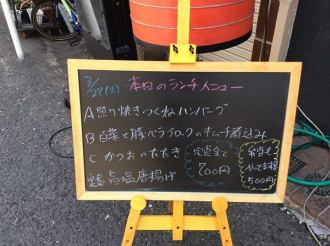 3/27(火) 本日のランチメニュー
A 照り焼きつくねハンバーグ
B 白菜と豚バラブロックのキムチ煮込み
C かつおのたたき
定食全て700円
弁当もやってます500円
塩唐揚げ